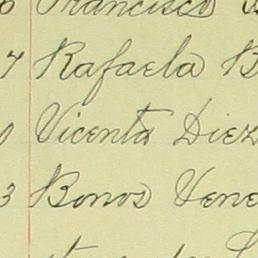 Francisco
7 Rafaela B
Vicenta Diez
3 Bonos Vene